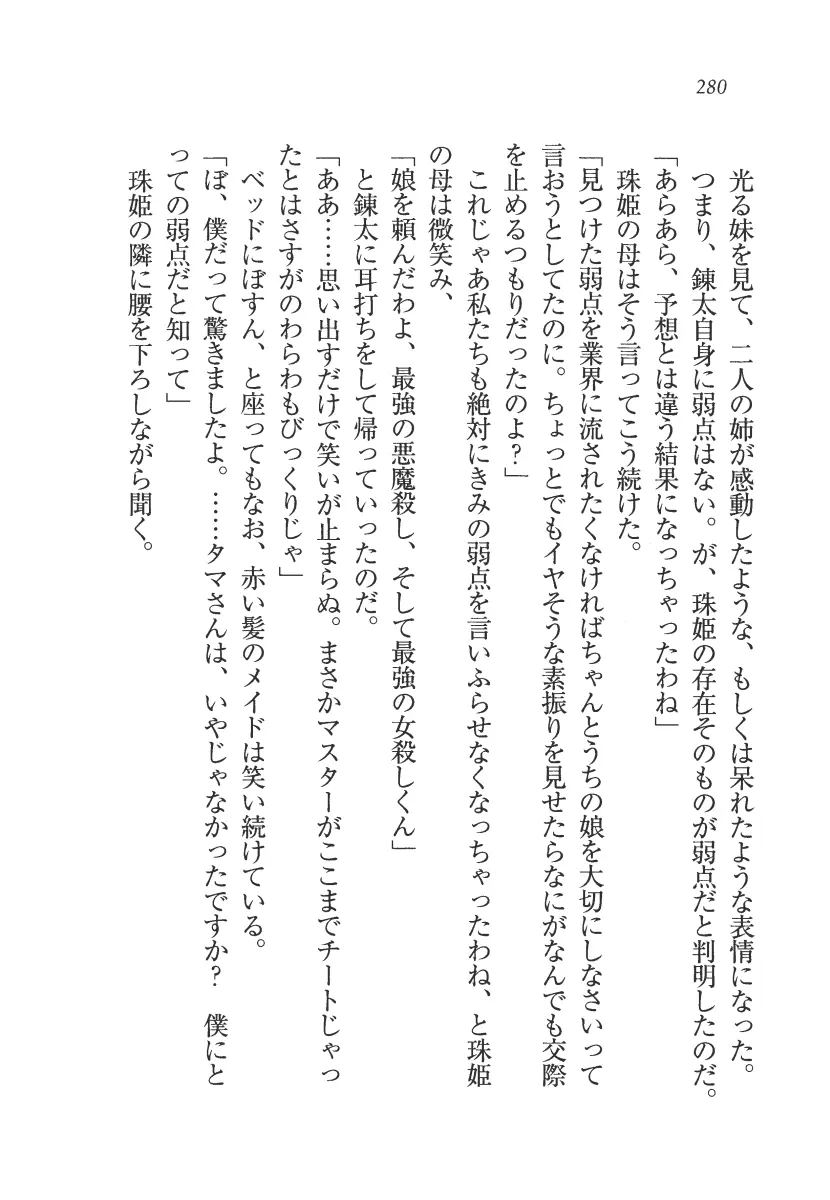 280
光る妹を見て、二人の姉が感動したような、もしくは呆れたような表情になった。
つまり、錬太自身に弱点はない。が、珠姫の存在そのものが弱点だと判明したのだ。
「あらあら、予想とは違う結果になっちゃったわね」
珠姫の母はそう言ってこう続けた。
「見つけた弱点を業界に流されたくなければちゃんとうちの娘を大切にしなさいって
言おうとしてたのに。ちょっとでもイヤそうな素振りを見せたらなにがなんでも交際
を止めるつもりだったのよ?」
これじゃあ私たちも絶対にきみの弱点を言いふらせなくなっちゃったわね、と珠姫
の母は微笑み、
「娘を頼んだわよ、最強の悪魔殺し、そして最強の女殺しくん」
と錬太に耳打ちをして帰っていったのだ。
「ああ……思い出すだけで笑いが止まらぬ。まさかマスターがここまでチートじゃっ
たとはさすがのわらわもびっくりじゃ」
ベッドにぼすん、と座ってもなお、赤い髪のメイドは笑い続けている。
「ぼ、僕だって驚きましたよ。……タマさんは、いやじゃなかったですか?　僕にと
っての弱点だと知って」
珠姫の隣に腰を下ろしながら聞く。